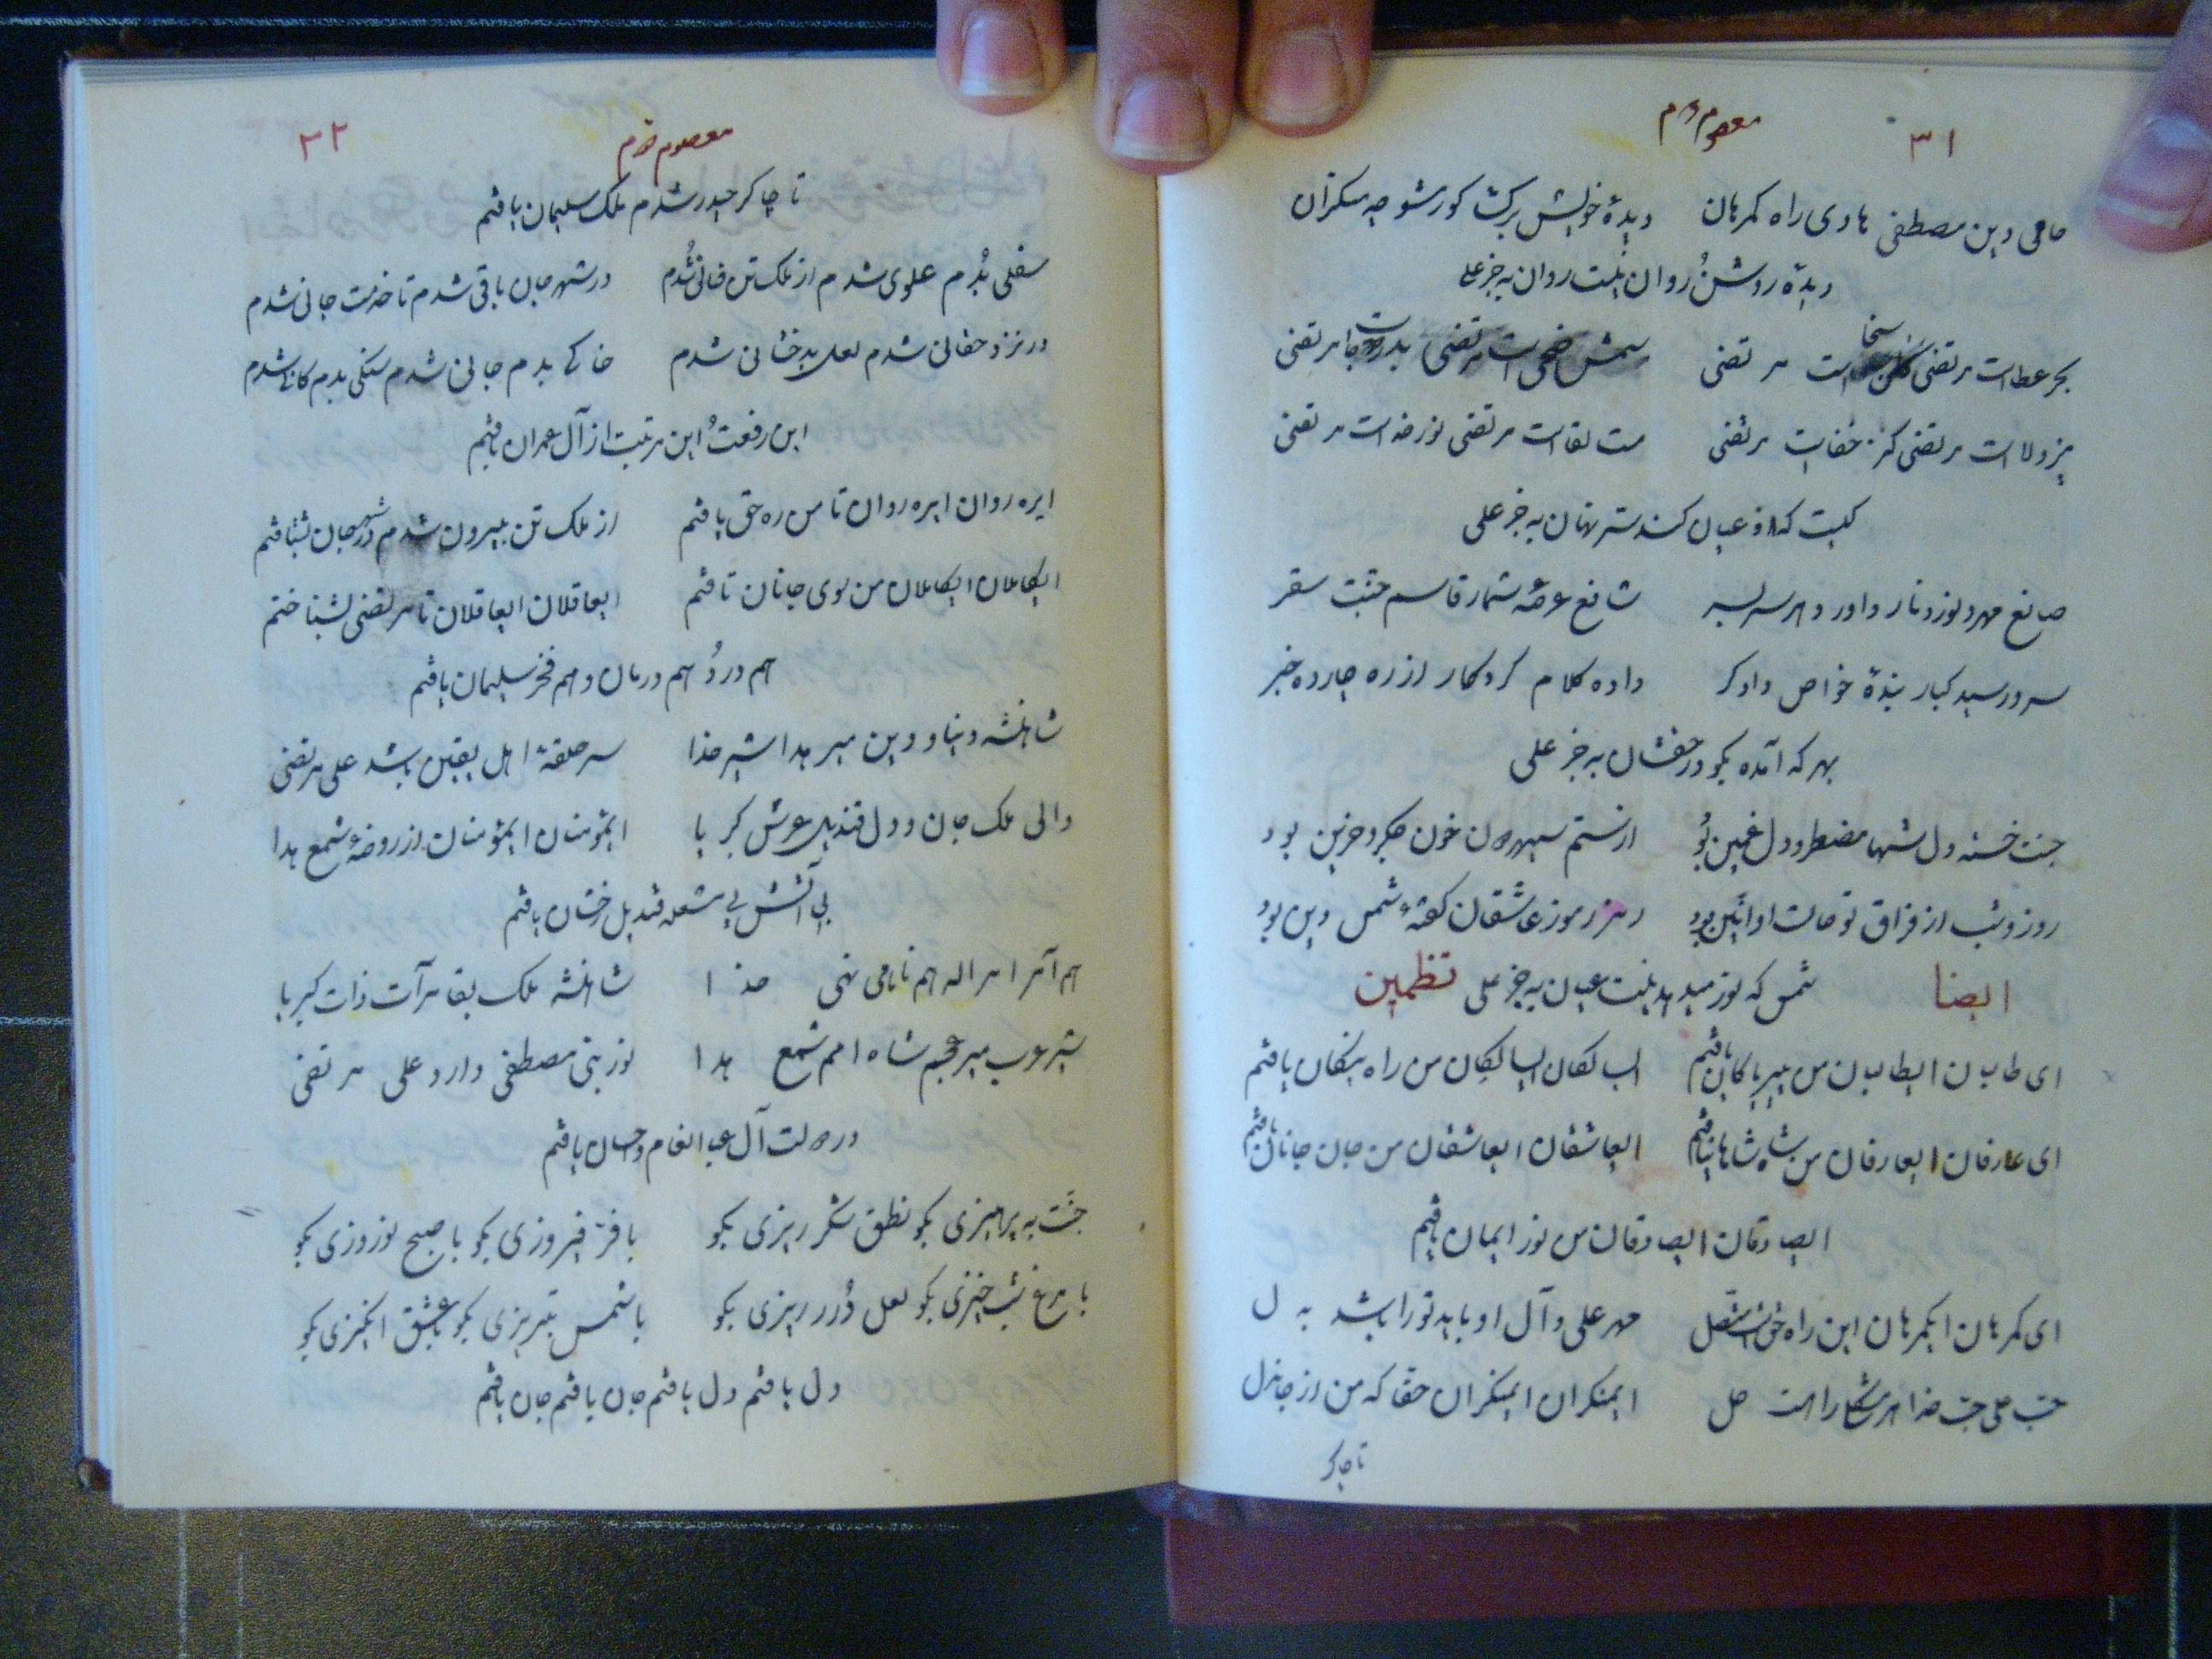 ٣١
معصوم دوم
حامی دین مصطفی هادی راه کمرهان دیدهٔ خویش برکن کور شو چه منکران
دیدهٔ روشن روان نیست روان به جز علی
بحر عطاست مرتضی کان سخا است مرتضی شمس ضحی است مرتضی بدر مرتضی
ولاست مرتضی مرتضی مست لقاست مرتضی نور خداست مرتضی
کیست که او عیان کند ستر نهان به جز علی
صانع مهر و نور و نار داور دهر سربسر شافع عرصهٔ شمار قاسم جنت سقر
سرور سید کبار بندهٔ خواص دادکر داده کلام کردکار از ره چارده خبر
بهر که آمده بکو در حقشان به جز علی
خسته دل شها مضطر و دل غمین بود از ستم سپهر دون خون جکر و حزین بود
روز و شب از فراق تو حالت او انین بود رمز رموز عاشقان کفتهٔ شمس دین بود
ایضا شمس که نور میدهد نیست عیان به جز علی تظمین
ای طالبان ایطالبان من پیر پاکان یافتم ایسالکان ایسالکان من راه نیکان یافتم
ای عارفان ایعارفان من شاه شاهان یافتم ایعاشقان ایعاشقان من جان جانان یافتم
ایصادقان ایصادقان من نور ایمان یافتم
ای کمرهان ایکمرهان این راه مهر علی و آل او باید تو را باشد به دل
حب علی حب خدا هر مشکل را هست حل ایمنکران ایمنکران حقا که من از جان دل
تا چاکر
٣٢
معصوم دوم
تا چاکر حیدر شدم ملک سلیمان یافتم
سفلی بدم علوی شدم از ملک تن فانی شدم در شهر جان باقی شدم تا خدمت جانی شدم
در نزد حقانی شدم لعل بدخشانی شدم خاکی بدم جانی شدم سنکی بدم کانی شدم
این رفعت و این مرتبت از آل عمران یافتم
ایره روان ایره روان تا من ره حق یافتم از ملک تن بیرون شدم در شهر جان بشتافتم
ایکاملان ایکاملان من بوی جانان تافتم ایعاقلان ایعاقلان تا مرتضی بشناختم
هم درد و هم درمان و هم فخر سلیمان یافتم
شاهنشه دنیا و دین میر هدا شیر خدا سر حلقهٔ اهل یقین باشد علی مرتضی
والی ملک جان و دل قندیل عرش کبریا ایمؤمنان ایمؤمنان از روضهٔ شمع هدا
بی آتش بی شعله قندیل رخشان یافتم
هم آمر امر اله هم ناهی نهی خدا شاهنشه ملک بقا مرآت ذات کبریا
شیر عرب میر عجم شاه امم شمع هدا نور نبی مصطفی دارد علی مرتضی
در دولت آل عبا انعام و احسان یافتم
جنت به پرهیزی بکو نطق شکر ریزی بکو با فر فیروزی بکو با صبح نوروزی بکو
با مرغ شب خیزی بکو لعل و درر ریزی بکو با شمس تبریزی بکو با عشق انکیزی بکو
دل یافتم دل یافتم جان یافتم جان یافتم